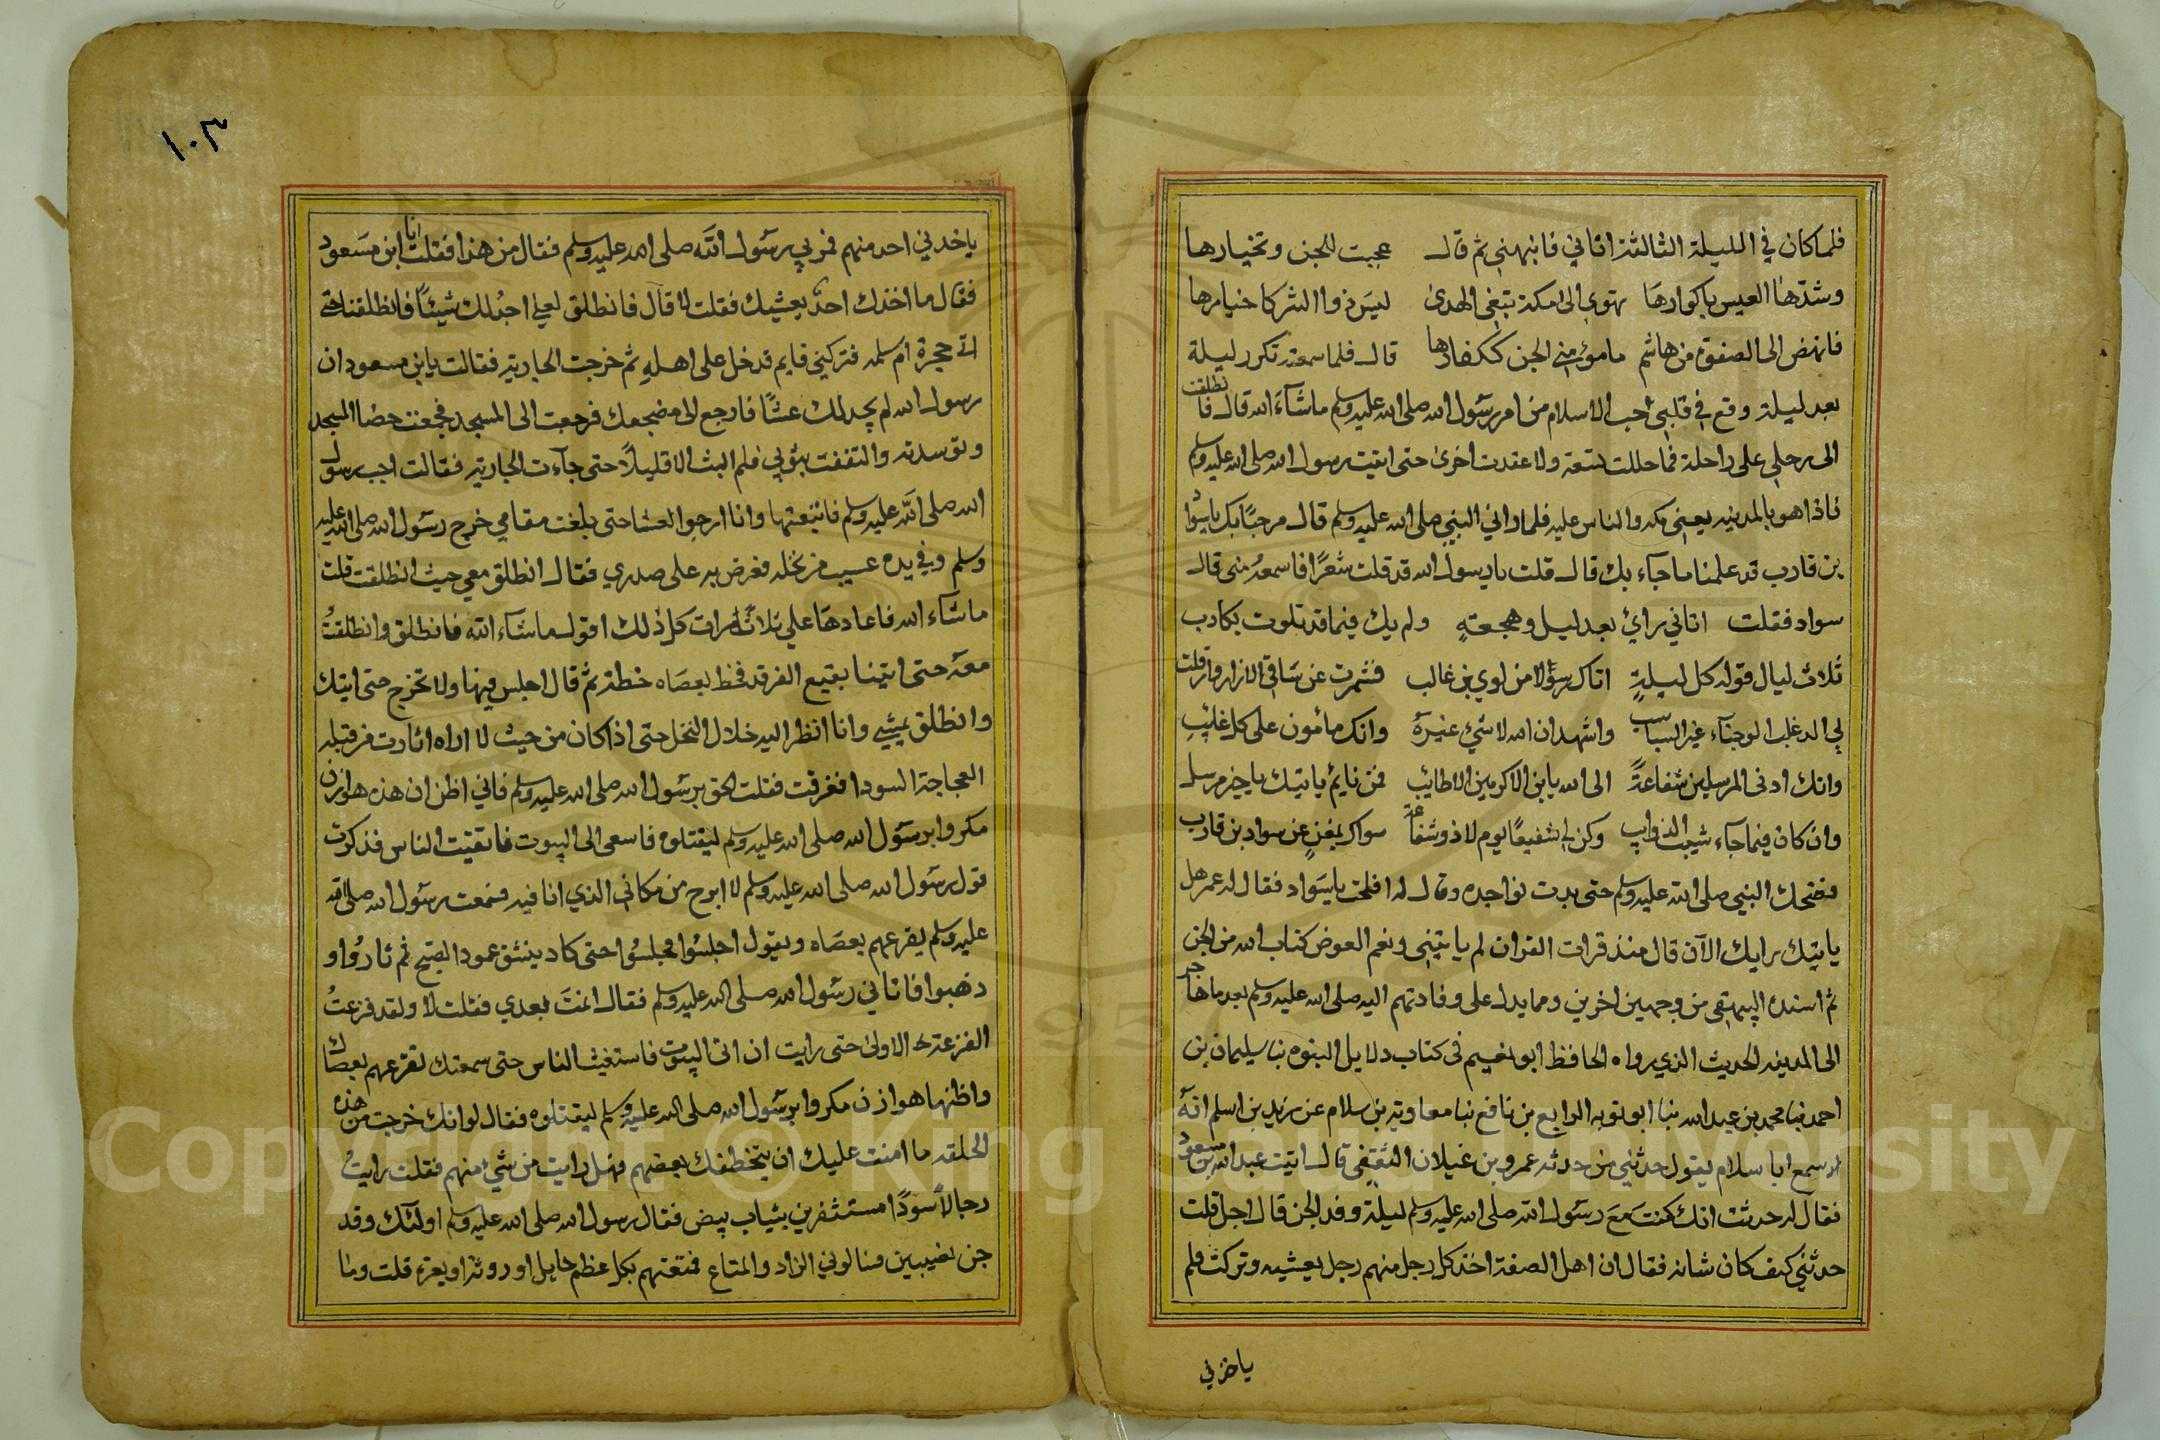 فلما كان في الليلة الثالثة اتاني فانبهني ثم قال عجبت للجن وتخيارها
وشدها العيس باكوارها تهوي الى مكة تبغي الهدى ليس ذوا الشر كاخيارها
فانهض الى الصفوة من هاشم ما مؤمني الجن ككفارها قال فلما سمعته تكرر ليلة
بعد ليلة وقع في قلبي حب الاسلام من امر رسول الله صلى الله عليه وسلم ماشآء الله قال فانطلقت
الى رحلي على راحلة فما حللت لسعة ولا عقدت اخرى حتى اتيت رسول الله صلى الله عليه وسلم
فاذا هو بالمدينه يعني مكه والناس عليه فلما رآني النبي صلى الله عليه وسلم قال مرحبًا بك ياسواد
بن قارب قد علمنا ما جآء بك قال قلت يا رسول الله قد قلت شعرًا فاسمعه مني قال
سواد فقلت اتاني رائ بعد ليل وهجعةٍ ولم يك فيما قد تلوت بكادب
ثلاث ليال قوله كل ليلةٍ اتاك رسولا من لوي بن غالب فشمرت عن ساقي الازار وارقلت
بي الدعلب الوجناء غبر السباسب واشهد ان الله لا شيء غيرهٌ وانك مأمون على كل غايب
وانك ادنى المرسلين شفاعةً الى الله يابن الاكرمين الاطائب فمن نايم ياتيك ياخير مرسل
وان كان فيما جآء شيب الذوايب وكن لي شفيعًا يوم لا ذو شفاعة سواك بمغنٍ عن سواد بن قارب
فضحك النبي صلى الله عليه وسلم حتى بدت نواجده وقال له افلحت ياسواد فقال له عمر هل
ياتيك رايك الآن قال منذ قرات القران لم ياتيني ونعم العوض كتاب الله من الجن
ثم اسنده البيهقي من وجهين اخرين ومما يدل على وفادتهم اليه صلى الله عليه وسلم بعد ما هاجر
الى المدينه الحديث الذي رواه الحافظ ابو نعيم في كتاب دلايل النبوه بنا سليمان بن
احمد نبا محمد بن عبد الله نبا ابو توبه الرابع بن نافع نبا معاويه بن سلام عن زيد بن اسلم انه
سمع ابا سلام يقول حدثني من حدثه عمرو بن غيلان الثقفي قال اتيت عبد الله بن مسعود
فقال له حدثت انك كنت مع رسول الله صلى الله عليه وسلم ليلة وفد الجن قال اجل قلت
حدثني كيف كان شانه فقال ان اهل الصفة اخذ كل رجل منهم رجل يعشيه وتركت ولم
ياخدني
١٠٣
ياخدني احد منهم فمر بي رسول الله صلى الله عليه وسلم فقال من هذا فقلت انا ابن مسعود
فقال ما اخذك احد يعشيك فقلت لا قال فانطلق لعلي اجد لك شيئًا فانطلقنا حتى
اتى حجرة ام سلمه فتركني قايم قدخل على اهله ثم خرجت الجاريه فقالت يا بن مسعود ان
رسول الله لم يجد لك عشًا فارجع الى مضجعك فرجعت الى المسجد فجمعت حصا المسجد
وتوسدته والتففت بثوبي فلم البث الا قليلاً حتى جآءت الجاريه فقالت اجب رسول
الله صلى الله عليه وسلم فاتبعتها وانا ارجوا العشا حتى بلغت مقامي خرج رسول الله صلى الله عليه
وسلم وفي يده عسيب من نخله فعرض به على صدري فقال انطلق معي حيث انطلقت قلت
ماشآء الله فاعادها علي ثلاث مرات كل ذلك اقول ماشآء الله فانطلق وانطلقتُ
معه حتى اتينا بقيع الغرقد فخط بعصاه خطة ثم قال اجلس فيها ولا تخرج حتى اتيك
وانطلق يمشي وانا انظر اليه خلال النخل حتى اذا كان من حيث لا اراه اثارت من قبله
العجاجة السودا ففرقت فقلت الحق برسول الله صلى الله عليه وسلم فاني اظن ان هذه هوازن
مكروا برسول الله صلى الله عليه وسلم ليقتلوه فاسعى الى البيوت فاستغيث الناس فذكرت
قول رسول الله صلى الله عليه وسلم لا ابرح من مكاني الذي انا فيه فسمعت رسول الله صلى الله
عليه وسلم يقرعهم بعصاه ويقول اجلسُوا فجلسُوا حتى كاد ينشق عمود الصبح ثم ثارُوا و
ذهبوا فاتاني رسول الله صلى الله عليه وسلم فقال انمت بعدي فقلت لا ولقد فزعتُ
الفزعة الاولى حتى رايت ان اتي البيوت فاستغيث الناس حتى سمعتك تقرعهم بعصاك
واظنها هوازن مكروا برسول الله صلى الله عليه وسلم ليقتلوه فقال لو انك خرجت من هذه
الحلقه ما امنت عليك ان يتخطفك بعضهم فهل رايت من شيء منهم فقلت رايتُ
رجالاً سودًا مستثفرين بثياب بيض فقال رسول الله صلى الله عليه وسلم اولئك وفد
جن نصيبين فسالوني الزاد والمتاع فمتعتهم بكل عظم حايل او روثة او بعره قلت وما
Copyright © King Saud University